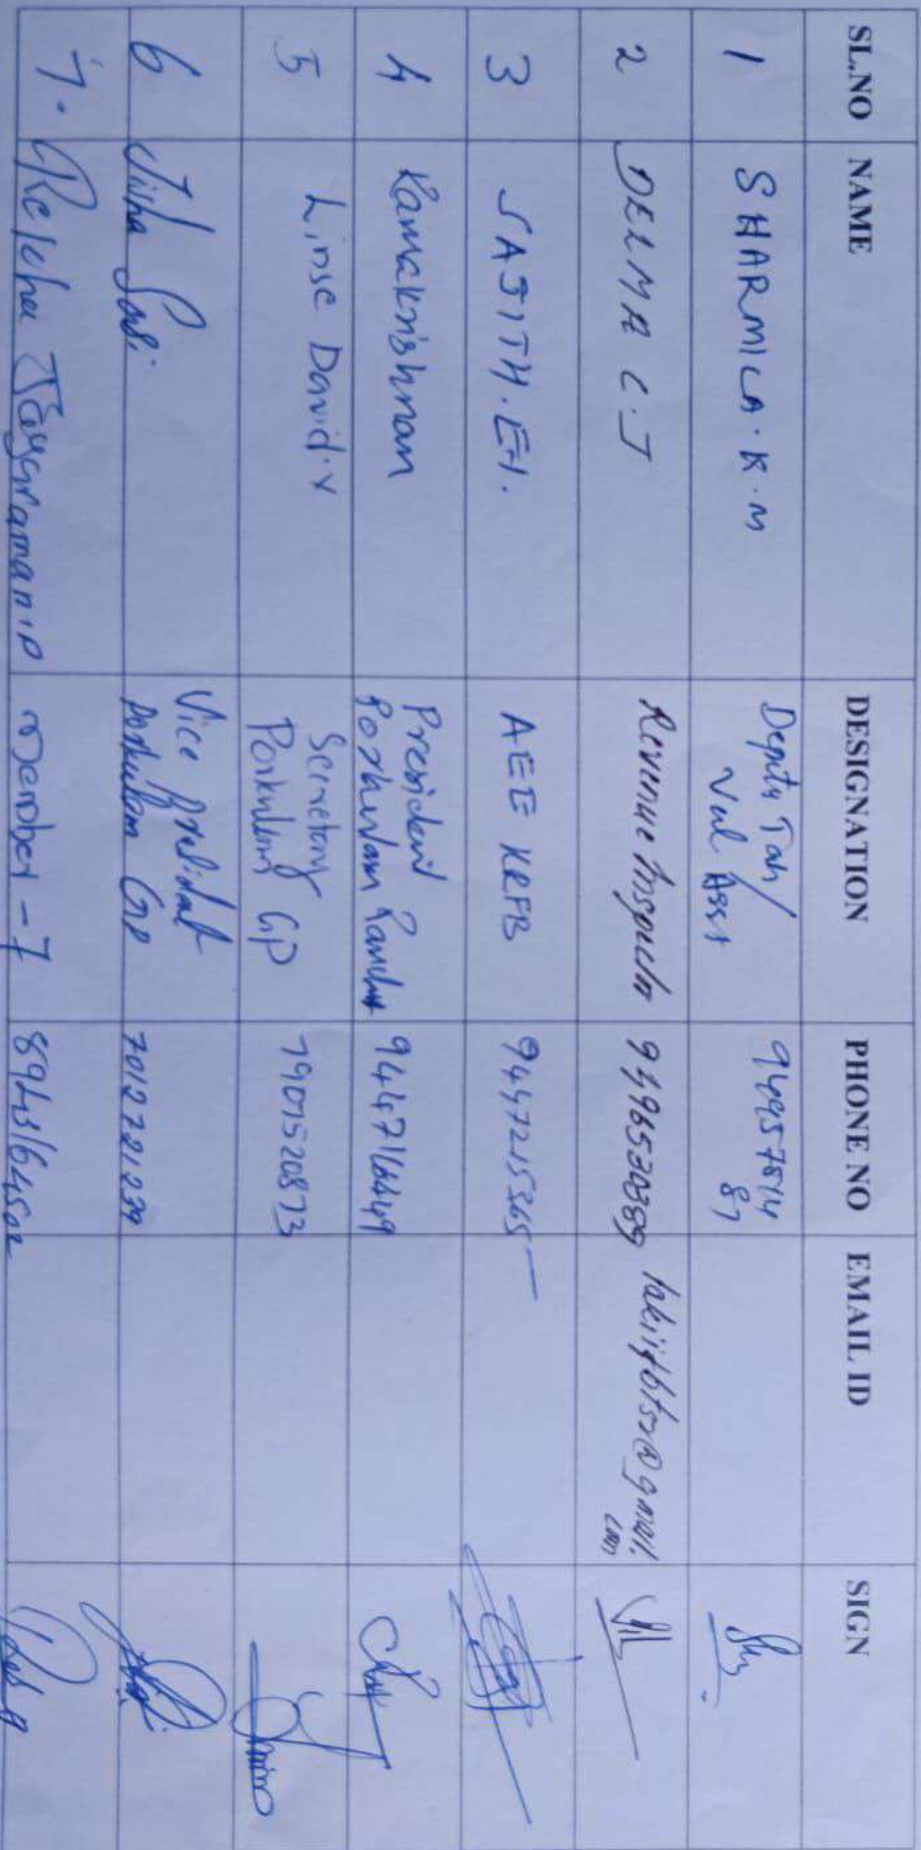 SL.NO NAME DESIGNATION PHONE NO EMAIL ID SIGN
1 SHARMILA.K.M Deputy Tah/ Val Asst 94957814 87
2 DELMA C.J Revenue Inspector 9496530389 @gmail.com
3 SAJITH.E.H. AEE KRFB 9447215365
4 Ramakrishnan President Porkulam Panchayt 9447116649
5 Linse David.V Secretary Porkulam GP 7907520873
6 Jisha Sasi Vice President Porkulam GP 7012721239
7. Rekha Jayaraman.P Member - 7